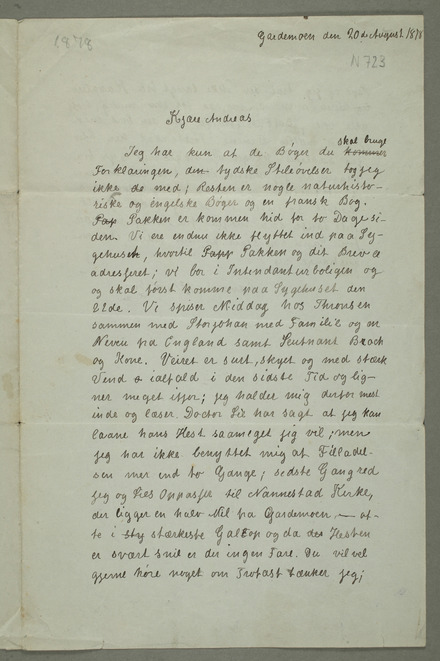 1878
Gardemoen den 20de August 1878
N 723
Kjære Andreas
skal bruge
Jeg har kun at de Bøger du kommer
Forklaringen, den tydske Stiløvelser tog jeg
ikke de med; Resten er nogle naturhisto-
riske og engelske Bøger og en fransk Bog.
Pap Pakken er kommen hid for to Dage si-
den. Vi ere endnu ikke flyttet ind paa Sy-
gehuset, hvortil Papp Pakken og dit Brev a
adresseret; vi bor i Intendanturboligen og
og skal først komme paa Sygehuset den
Vi spiser Middag hos Thronsen
sammen med Storjohan med Familie og en
Neveu fra England samt Leutnant Brach
og Kone. Veiret er surt, skyet og med stærk
Vend o ialfald i den sidste Tid og lig-
ner meget ifjor; jeg holder mig derfor mest
inde og læser. Doctor har sagt at jeg kan
laane hans Hest saameget jeg vil; men
jeg har ikke benyttet mig af Tillade-
sen mer end to Gange; sedste Gang red
jeg og Oppasser til Nannestad Kirke,
der ligger en halv Mil fra Gardemoen — of-
te i sty stærkeste Galop og da des Hesten
er svært snil er der ingen Fare. Du vil vel
gjerne høre noget om Trofast tænker jeg;